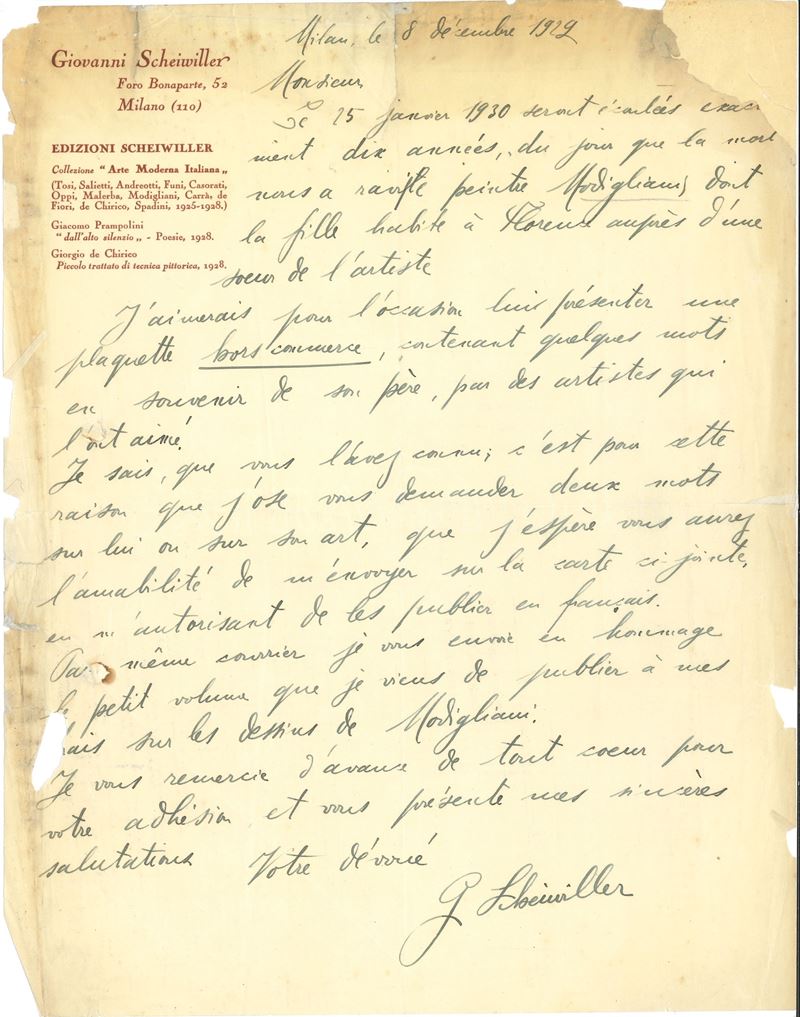 Giovanni Scheiwiller
Foro Bonaparte, 52
Milano (110)
EDIZIONI SCHEIWILLER
Collezione "Arte Moderna Italiana„
(Tosi, Salietti, Andreotti, Funi, Casorati,
Oppi, Malerba, Modigliani, Carrà, de
Fiori, de Chirico, Spadini, 1925-1928.)
Giacomo Prampolini
"dall'alto silenzio„ - Poesie, 1928.
Giorgio de Chirico
Piccolo trattato di tecnica pittorica, 1928.
Milan, le 8 décembre 1929
Monsieur
Le 25 janvier 1930 seront écoulées exac
ment dix années, du jour que la mort
nous a ravi le peintre Modigliani, dont
la fille habite à Florence auprès d'une
soeur de l'artiste
J'aimerais pour l'occasion lui présenter une
plaquette hors commerce, contenant quelques mots
en souvenir de son père, par des artistes qui
l'ont aimé.
Je sais, que vous l'avez connu; c'est pour cette
raison que j'ose vous demander deux mots
sur lui ou sur son art, que j'espère vous aurez
l'amabilité de m'envoyer sur la carte ci-jointe,
en m'autorisant de les publier en français.
Par même courrier je vous envoie en hommage
le petit volume que je viens de publier à mes
rais sur les dessins de Modigliani.
Je vous remercie d'avance de tout coeur pour
votre adhésion et vous présente mes sincères
salutations Votre dévoué
G Scheiwiller